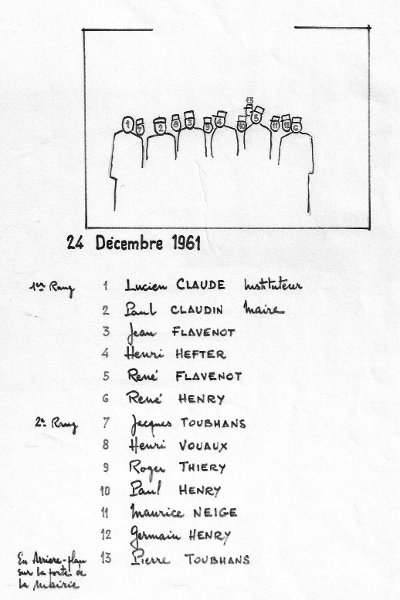 24 Décembre 1961
1er Rang 1 Lucien CLAUDE Instituteur
2 Paul CLAUDIN Maire
3 Jean FLAVENOT
4 Henri HEFTER
5 René FLAVENOT
6 René HENRY
2e Rang 7 Jacques TOUBHANS
8 Henri VOUAUX
9 Roger THIERY
10 Paul HENRY
11 Maurice NEIGE
12 Germain HENRY
En Arrière-plan
sur la porte de
la Mairie
13 Pierre TOUBHANS